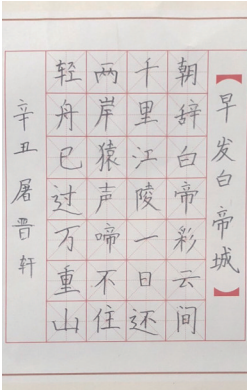 【早发白帝城】
朝辞白帝彩云间
千里江陵一日还
两岸猿声啼不住
轻舟已过万重山
辛丑 屠晋轩